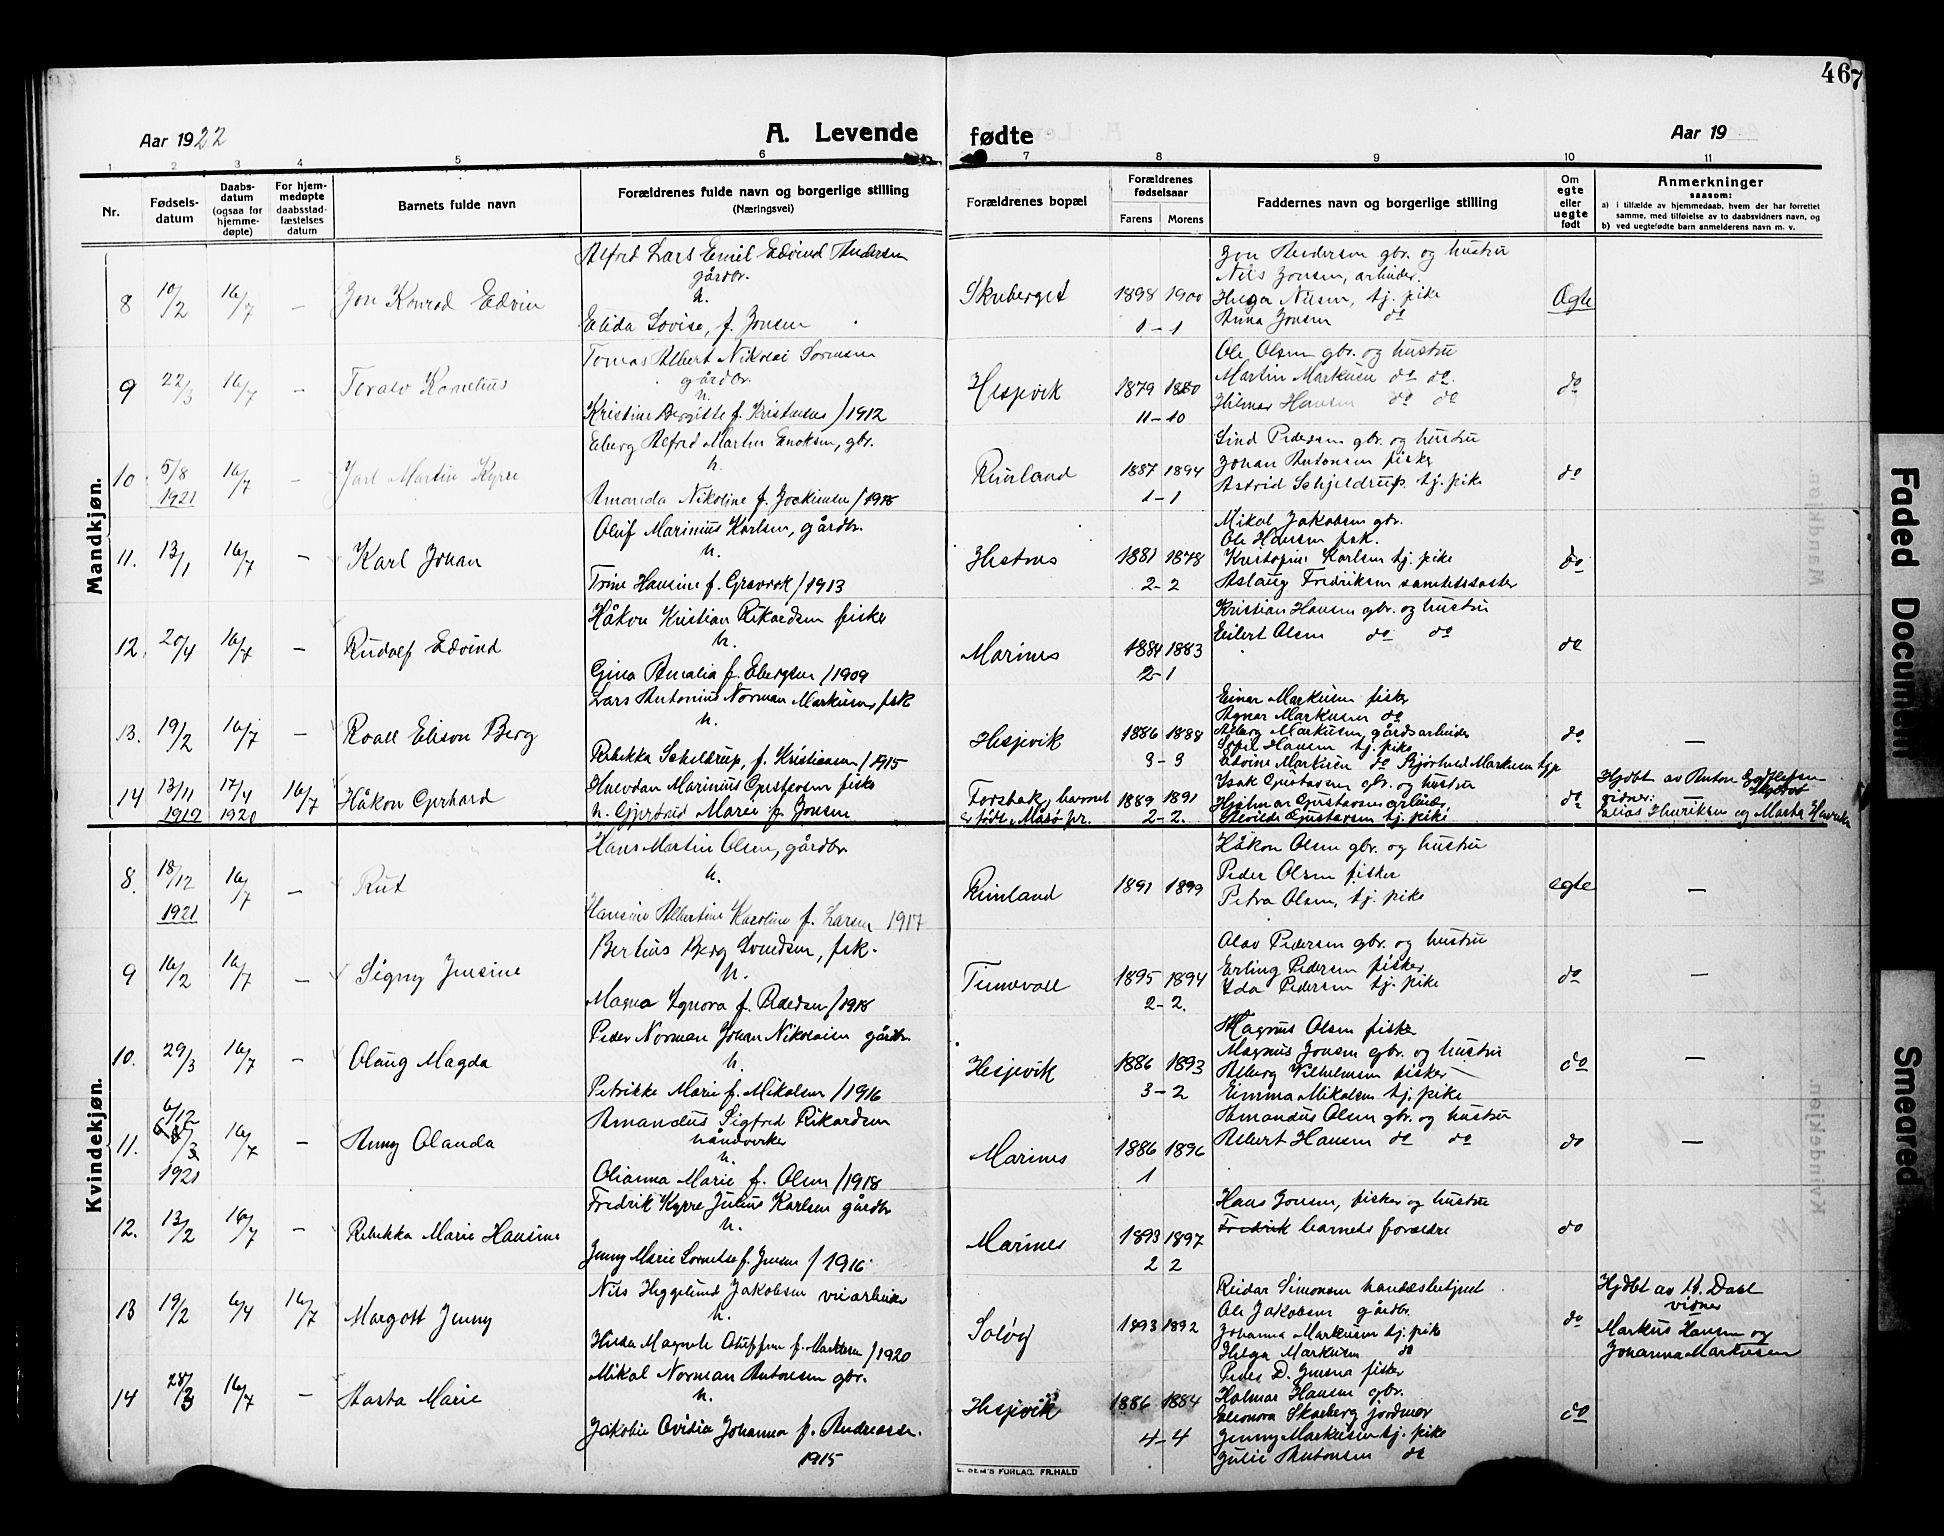 467
Aar 1922
A. Levende
fødte
Aar 19
1 2 3 4 5 6 7 8 9 10 11
Nr.
Fødsels-
datum
Daabs-
datum
(ogsaa for
hjemme-
døpte)
For hjem-
medøpte
daabsstad-
fæstelses
datum
Barnets fulde navn
Forældrenes fulde navn og borgerlige stilling
(Næringsvei)
Forældrenes bopæl
Forældrenes
fødselsaar
Farens
Morens
Faddernes navn og borgerlige stilling
Om
egte
eller
uegte
født
Anmerkninger
saasom:
a) i tilfælde av hjemmedaab, hvem der har forrettet
samme, med tilføielse av to daabsvidners navn, og
b) ved uegtefødte barn anmelderens navn m. v.
Mandkjøn.
8 10/2 16/7 – Jon Konrad Edvin
Alfred Lars Emil Edvind Andersen
gårdbr.
h.
Elida Lovise, f. Jonsen
Skuberget 1898 1900
1–1
Jon Andersen gbr. og hustru
Nils Jonsen, arbeider.
Helga Nilsen, tj. pike
Anna Jonsen do
Ægte
9 22/3 16/7 – Toralv Kornelius
Tomas Albert Nikolai
gårdbr.
h.
Kristine Bergitte f. /1912
Hesjevik 1879 1880
11–10
Ole Olsen gbr. og hustru
Martin Markusen do do.
Hilmar Hansen do do
do
10 5/8 16/7 – Jarl Martin Kyrre
1921
Eberg Alfred Martin Enoksen, gbr.
h.
Amanda Nikoline f. Joakimsen /1918
Reinland 1887 1894
1–1
Pedersen gbr. og hustru
Johan Antonsen fisker
Astrid Schjeldrup tj. pike
do
11. 13/1 16/7 – Karl Johan
Oluf Marinius Karlsen, gårdbr.
h.
Trine Hansine f. Gravrok /1913
Hestnes 1881 1878
2–2
Mikal Jakobsen gbr.
Ole Hansen fsk.
Karlsen tj. pike
Aslaug Fredriksen
do
12. 20/4 16/7 – Rudolf Edvind
Håkon Kristian Rikardsen fisker
h.
Gina Amalia f. Ebergsen /1909
Marines 1884 1883
2–1
Kristian Hansen gbr. og hustru
Eilert Olsen do do
do
13. 19/2 16/7 – Roall Elison Berg
Lars Antonius Norman Markusen, fsk
h.
Rebekka Scheldrup, f. Kristiansen /1915
Hesjevik 1886 1888
3–3
Einar Markusen fisker
Agnar Markusen do
Alberg Markusen, gårdsarbeider
Hansen tj. pike
Markusen do Markusen tj.p
do –
14 13/11 17/4 16/7 Håkon Gerhard
1919 1920
Halvdan Marinius Gustavsen fisker
h. Gjertrud Marie f. Jonsen
barnet
er født i Måsø pr.
1889 1891
2–2.
Isak Gustavsen gbr. og hustru
Hjalmar Gustavsen arbeider,
Gustavsen tj. pike
do
Hjdbt av Anton
vidner:
Henriksen og Marta
Kvindekjøn.
8. 18/12 16/7 – Rut
1921
Hans Martin Olsen, gårdbr.
h.
Hansine Albertine Karoline f. Larsen 1917
Reinland 1891 1899
Håkon Olsen gbr. og hustru
Peder Olsen fisker
Petra Olsen, tj. pike
egte –
9 16/2 16/7 – Signy Jensine
Bertius Berg Svendsen, fsk.
h.
Magna f. Pedersen /1918
1895 1894
2–2.
Olav Pedersen gbr. og hustru
Erling Pedersen fisker
Ida Pedersen tj. pike
do –
10. 29/3 16/7 – Olaug Magda
Peder Norman Johan Nikolaisen gårdbr.
h.
Petrikke Marie f. Mikalsen /1916
Hesjevik 1886 1893
3–2
Magnus Olsen fisker
Magnus Jonsen gbr. og hustru
Alberg Vilhelmsen fisker –
Emma Mikalsen tj. pike
do –
11. 6/12 16/7 – Anny Olanda
1921
Amandus Sigfred Rikardsen
håndverker
h.
Olianna Marie f. Olsen /1918
Marines 1886 1896
1
Amandus Olsen gbr. og hustru
Albert Hansen do do
do –
12. 13/2 16/7 – Rebekka Marie Hansine
Fredrik Kyrre Julius Karlsen gårdbr
h.
Jenny Marie f. Jensen /1916
Marines 1893 1897
2 2
Hans Jonsen, fisker og hustru
Fredrik barnets forældre
do
13 19/2 6/4 16/7 Margott Jenny
Nils Heggelund Jakobsen veiarbeider
h.
Hilda Magnele f. /1920
1893 1892
Reidar Simonsen handelsbetjent
Ole Jakobsen gårdbr.
Johanna Markusen tj. pike
Helga Markusen do
do
Hjdbt av H. Dahl
vidner
Markus Hansen og
Johanna Markusen
14 28/3 16/7 – Marta Marie
Mikal Norman Antonsen gbr.
h.
Jakobie Ovidia Johanna f. Andreassen.
1915
Hesjevik 1886 1884
4–4
Peder D. Jensen fisker
Halmar Hansen gbr.
Eleonora Skarberg jordmor
Jenny Markusen tj. pike
Julie Antonsen do
do
E. SEM'S FORLAG. FR.HALD
Faded Document
Smeared